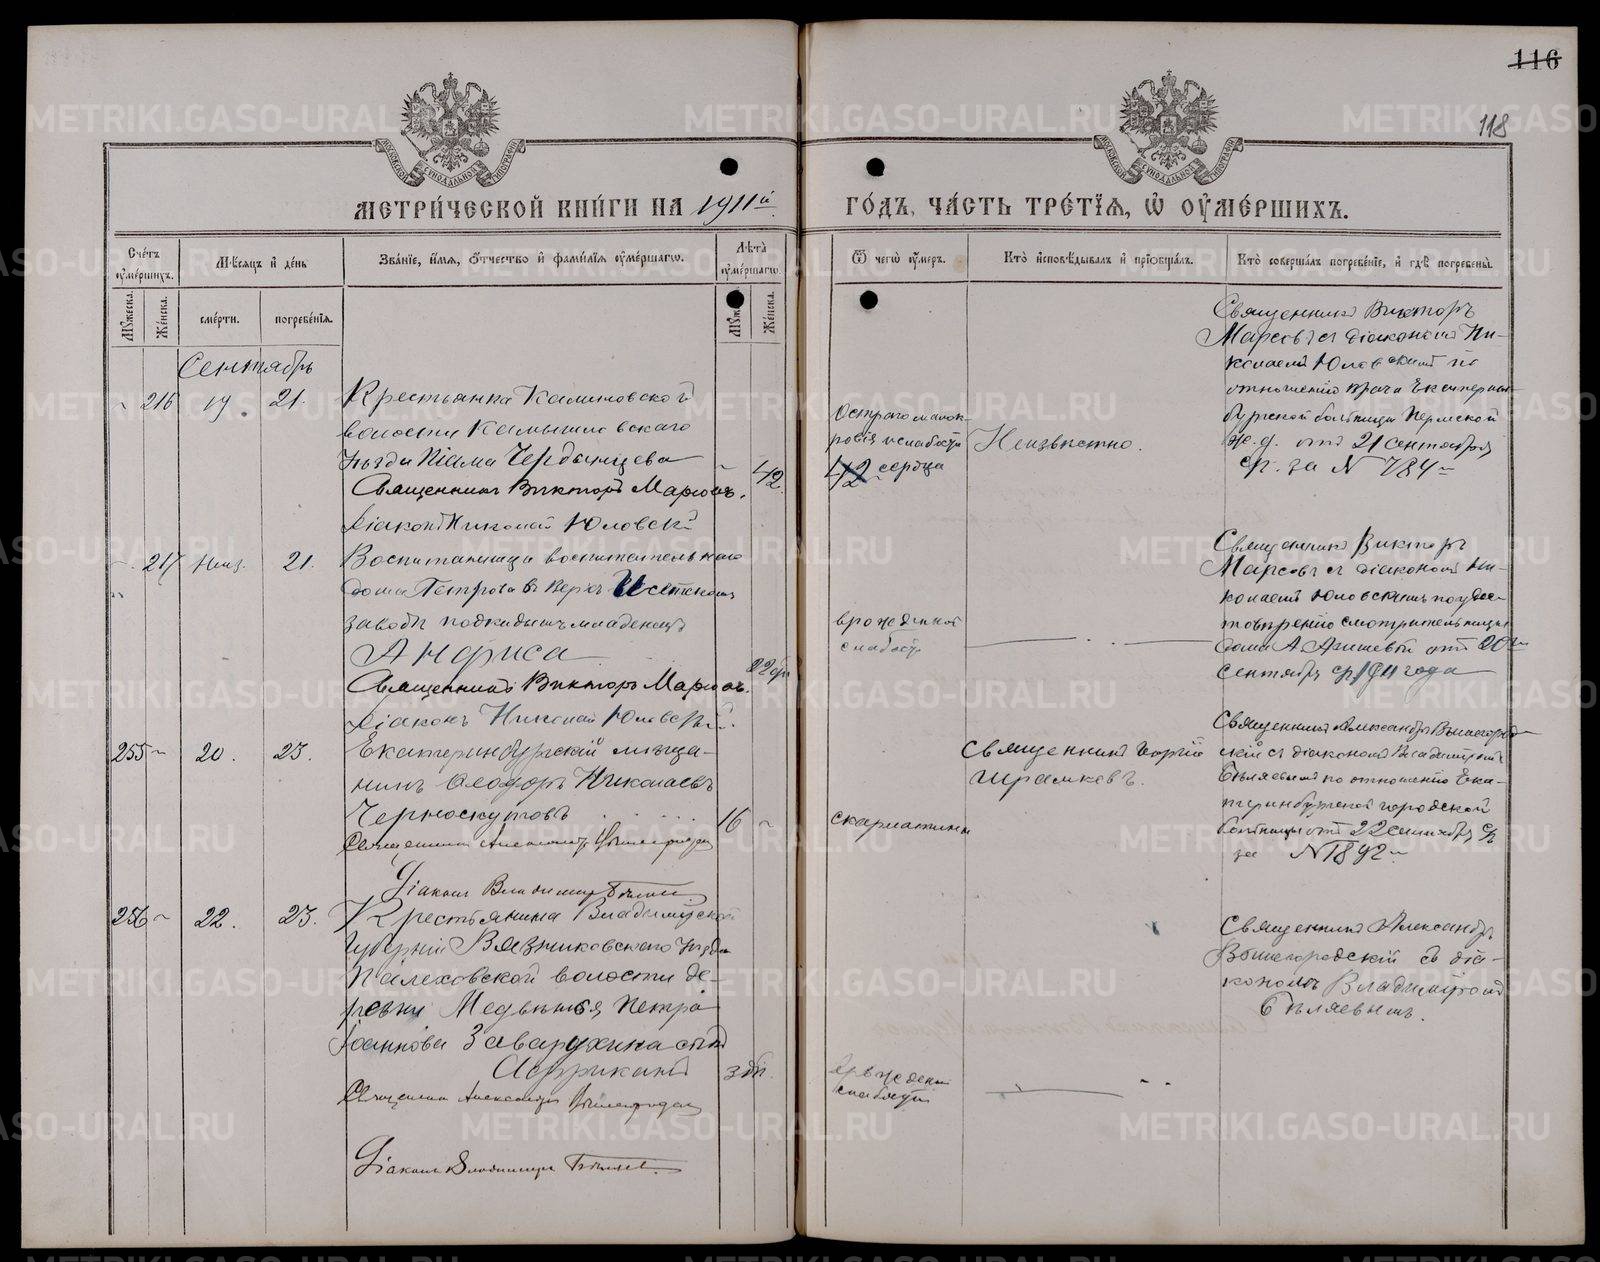 116
118
МЕТРИ́ЧЕСКОЙ КНИ́ГИ НА 1911й
ГО́ДЪ, ЧА́СТЬ ТРЕ́ТІЯ, Ѡ ОУМЕ́РШИХЪ.
Сче́тъ оуме́ршихъ.
Мѣсяцъ и день
Зва́ніе, и́мя, о́тчество и фами́лія оуме́ршагѡ.
Лѣта̀ оуме́ршагѡ.
Ѿ чегѡ̀ оу́меръ.
Кто̀ исповѣ́дывалъ и пріобща́лъ.
Кто̀ соверша́лъ погребе́ніе, и гдѣ̀ погребе́ны.
Му́жеска.
Же́нска.
сме́рти.
погребе́нія.
Му́жеска.
Же́нска.
Сентябрь
216 19. 21.
Крестьянка Калиновской
волости Камышловскаго
уѣзда Чердынцева
42.
Священникъ Викторъ Марсовъ.
Діаконъ Николай Юловскій
Остраго малок-
ровія и слабости
сердца
42
Неизвѣстно.
Священникъ Викторъ
Марсовъ съ діакономъ Ни-
колаемъ Юловскимъ по
отношенію врача Екатерин-
бургской больницы Пермской
ж.д. отъ 21 сентября
с.г. за № 784
217 Неиз. 21.
Воспитанница воспитательнаго
дома Петрова въ Верхъ Исетскомъ
заводѣ подкидышъ младенецъ
Анфиса
22 дн
Священникъ Викторъ Марсовъ.
Діаконъ Николай Юловскій.
врожденной
слабости
Священникъ Викторъ
Марсовъ съ діакономъ Ни-
колаемъ Юловскимъ по удос-
товѣренію смотрительницы
дома А. отъ 20
сентября с. 1911 года
255 20. 23.
Екатеринбургскій мѣща-
нинъ Ѳеодоръ Николаевъ
Черноскутовъ
16
Священникъ Александръ Вышегородскій
Діаконъ Владиміръ Бѣляевъ
скарлатины
Священникъ Георгій
Шрамковъ.
Священникъ Александръ Вышегород-
скій съ діакономъ Владиміромъ
Бѣляевымъ по отношенію Ека-
теринбургской городской
больницы отъ 22 сентября с.г.
за №1892
256 22. 23.
Крестьянина Владимірской
губерніи Вязниковскаго уѣзда
Палеховской волости де-
ревни Петра
Іоаннова Заварухина сынъ
Африканъ
3 дн.
Священникъ Александръ Вышегородскій
Діаконъ Владиміръ Бѣляевъ.
врожденной
слабости
Священникъ Александръ
Вышегородскій съ діа-
кономъ Владиміромъ
Бѣляевымъ.
METRIKI.GASO-URAL.RU